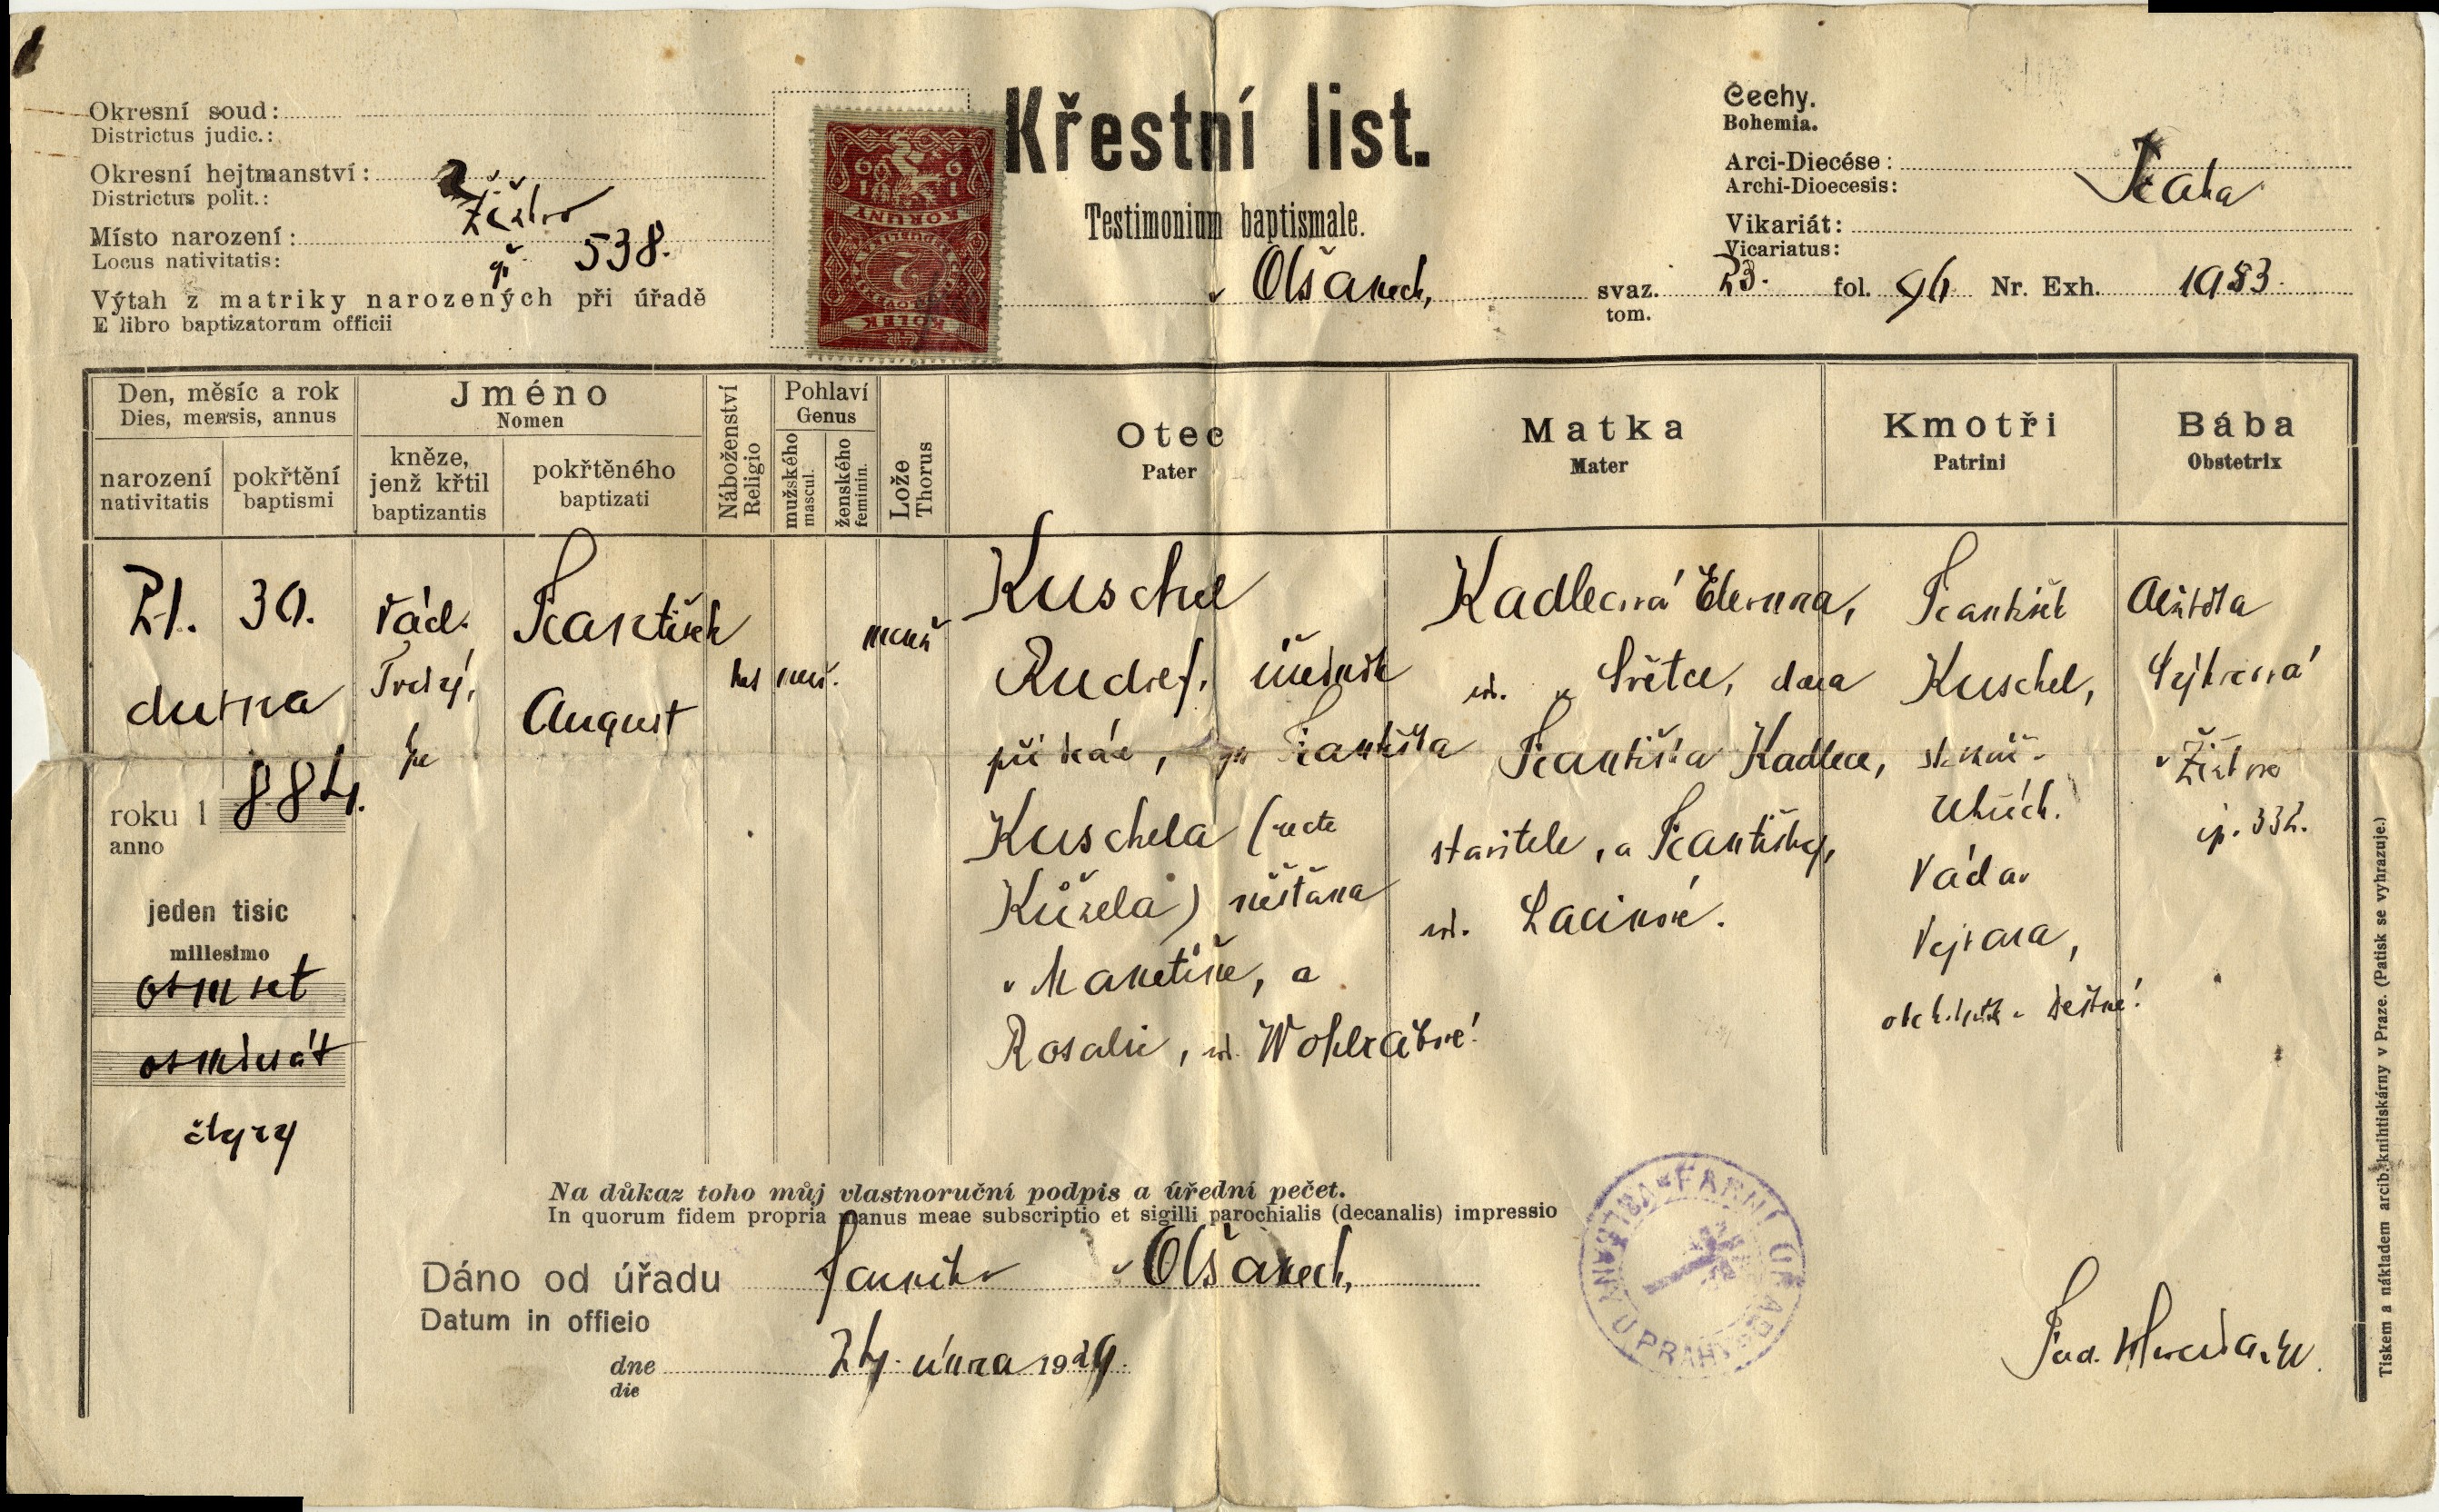 Okresní soud:
Districtus judic.:
Okresní hejtmanství:
Districtus polit.:
Žižkov
Místo narození:
Locus nativitatis:
čp. 538.
Výtah z matriky narozených při úřadě
E libro baptizatorum officii
Křestní list.
Testimonium baptismale.
v Olšanech,
KOLEK
2
KORUNY
1919
Čechy.
Bohemia.
Arci-Diecése: Praha
Archi-Dioecesis:
Vikariát:
Vicariatus:
svaz. 23. fol. 96 Nr. Exh. 1983.
tom.
Den, měsíc a rok
Dies, mensis, annus
narození
nativitatis
pokřtění
baptismi
Jméno
Nomen
kněze,
jenž křtil
baptizantis
pokřtěného
baptizati
Náboženství
Religio
Pohlaví
Genus
mužského
mascul.
ženského
feminin.
Lože
Thorus
Otec
Pater
Matka
Mater
Kmotři
Patrini
Bába
Obstetrix
21. 30.
dubna
roku 1884.
anno
jeden tisíc
millesimo
osmset
osmdesát
čtyry
Václ.
František
August
kat
muž.
manž
Kuschel
Rudolf, úředník
při dráze, syn Františka
Kuschela (recte
Kužela) měšťana
v Manetíně, a
Rosalie, roz. Wohlrábové
Kadlecová Eleonora,
roz. v Světce, dcera
Františka Kadlece,
stavitele, a Františky,
roz. Lacinové.
František
Kuschel,
Václav
Vejvara,
Alžběta
v Žižkově
čp. 332.
Na důkaz toho můj vlastnoruční podpis a úřední pečet.
In quorum fidem propria manus meae subscriptio et sigilli parochialis (decanalis) impressio
Dáno od úřadu farního v Olšanech,
Datum in officio
dne 24. února 1929.
die
FARNÍ ÚŘAD U PRAHY
Tiskem a nákladem arcib. knihtiskárny v Praze. (Patisk se vyhrazuje.)